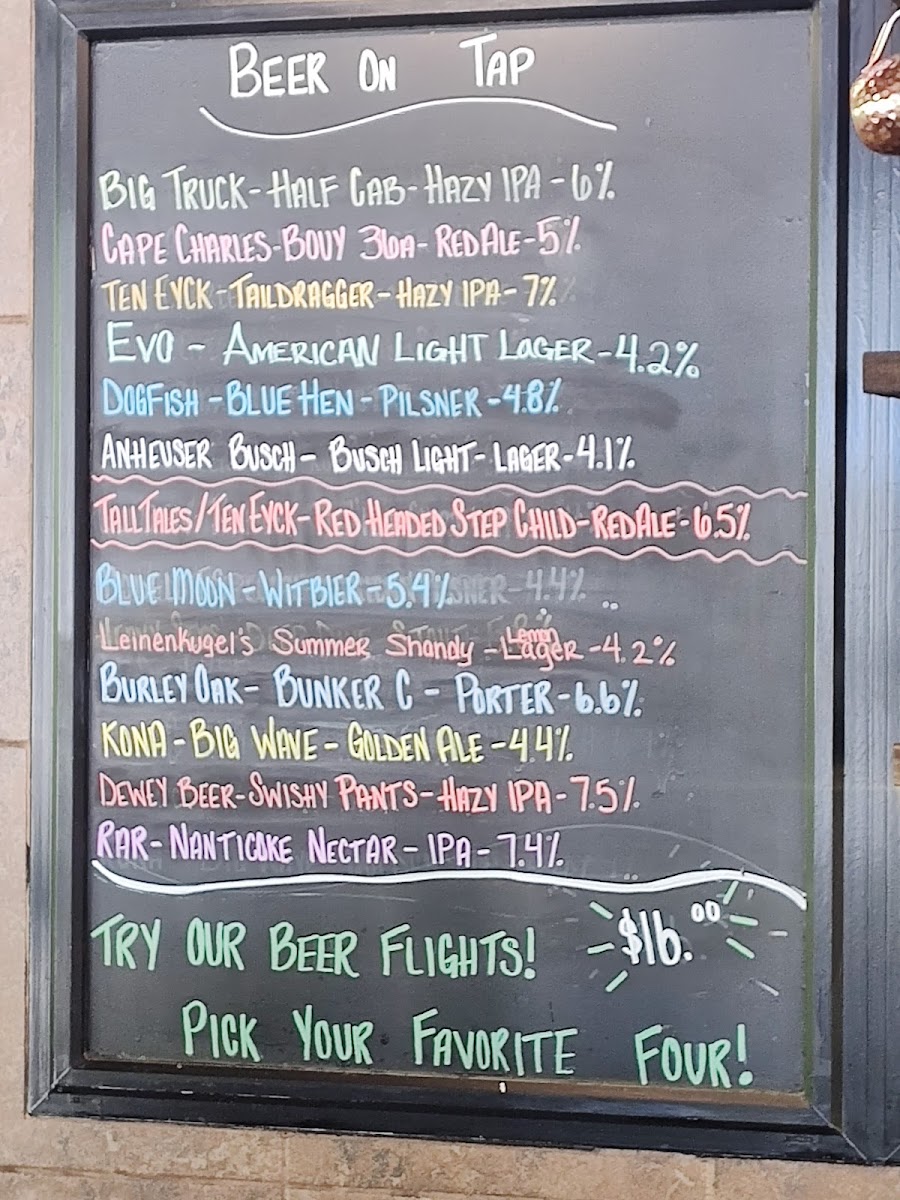 BEER ON TAP
BIG TRUCK-HALF CAB-HAZY IPA-6%
CAPE CHARLES-BOUY 36A-RED ALE-5%
TEN EYCK-TAILDRAGGER-HAZY IPA-7%
EVO - AMERICAN LIGHT LAGER-4.2%
DOGFISH-BLUE HEN-PILSNER-4.8%
ANHEUSER BUSCH- BUSCH LIGHT-LAGER-4.1%
TALL TALES/TEN EYCK-RED HEADED STEP CHILD-RED ALE-6.5%
BLUE MOON-WITBIER-5.4%
Leinenkugel's Summer Shandy -Lemon Lager -4.2%
BURLEY OAK- BUNKER C - PORTER-6.6%
KONA-BIG WAVE-GOLDEN ALE-4.4%
DEWEY BEER-SWISHY PANTS-HAZY IPA-7.5%
RAR-NANTICOKE NECTAR-IPA-7.4%
TRY OUR BEER FLIGHTS! $16.00
PICK YOUR FAVORITE FOUR!